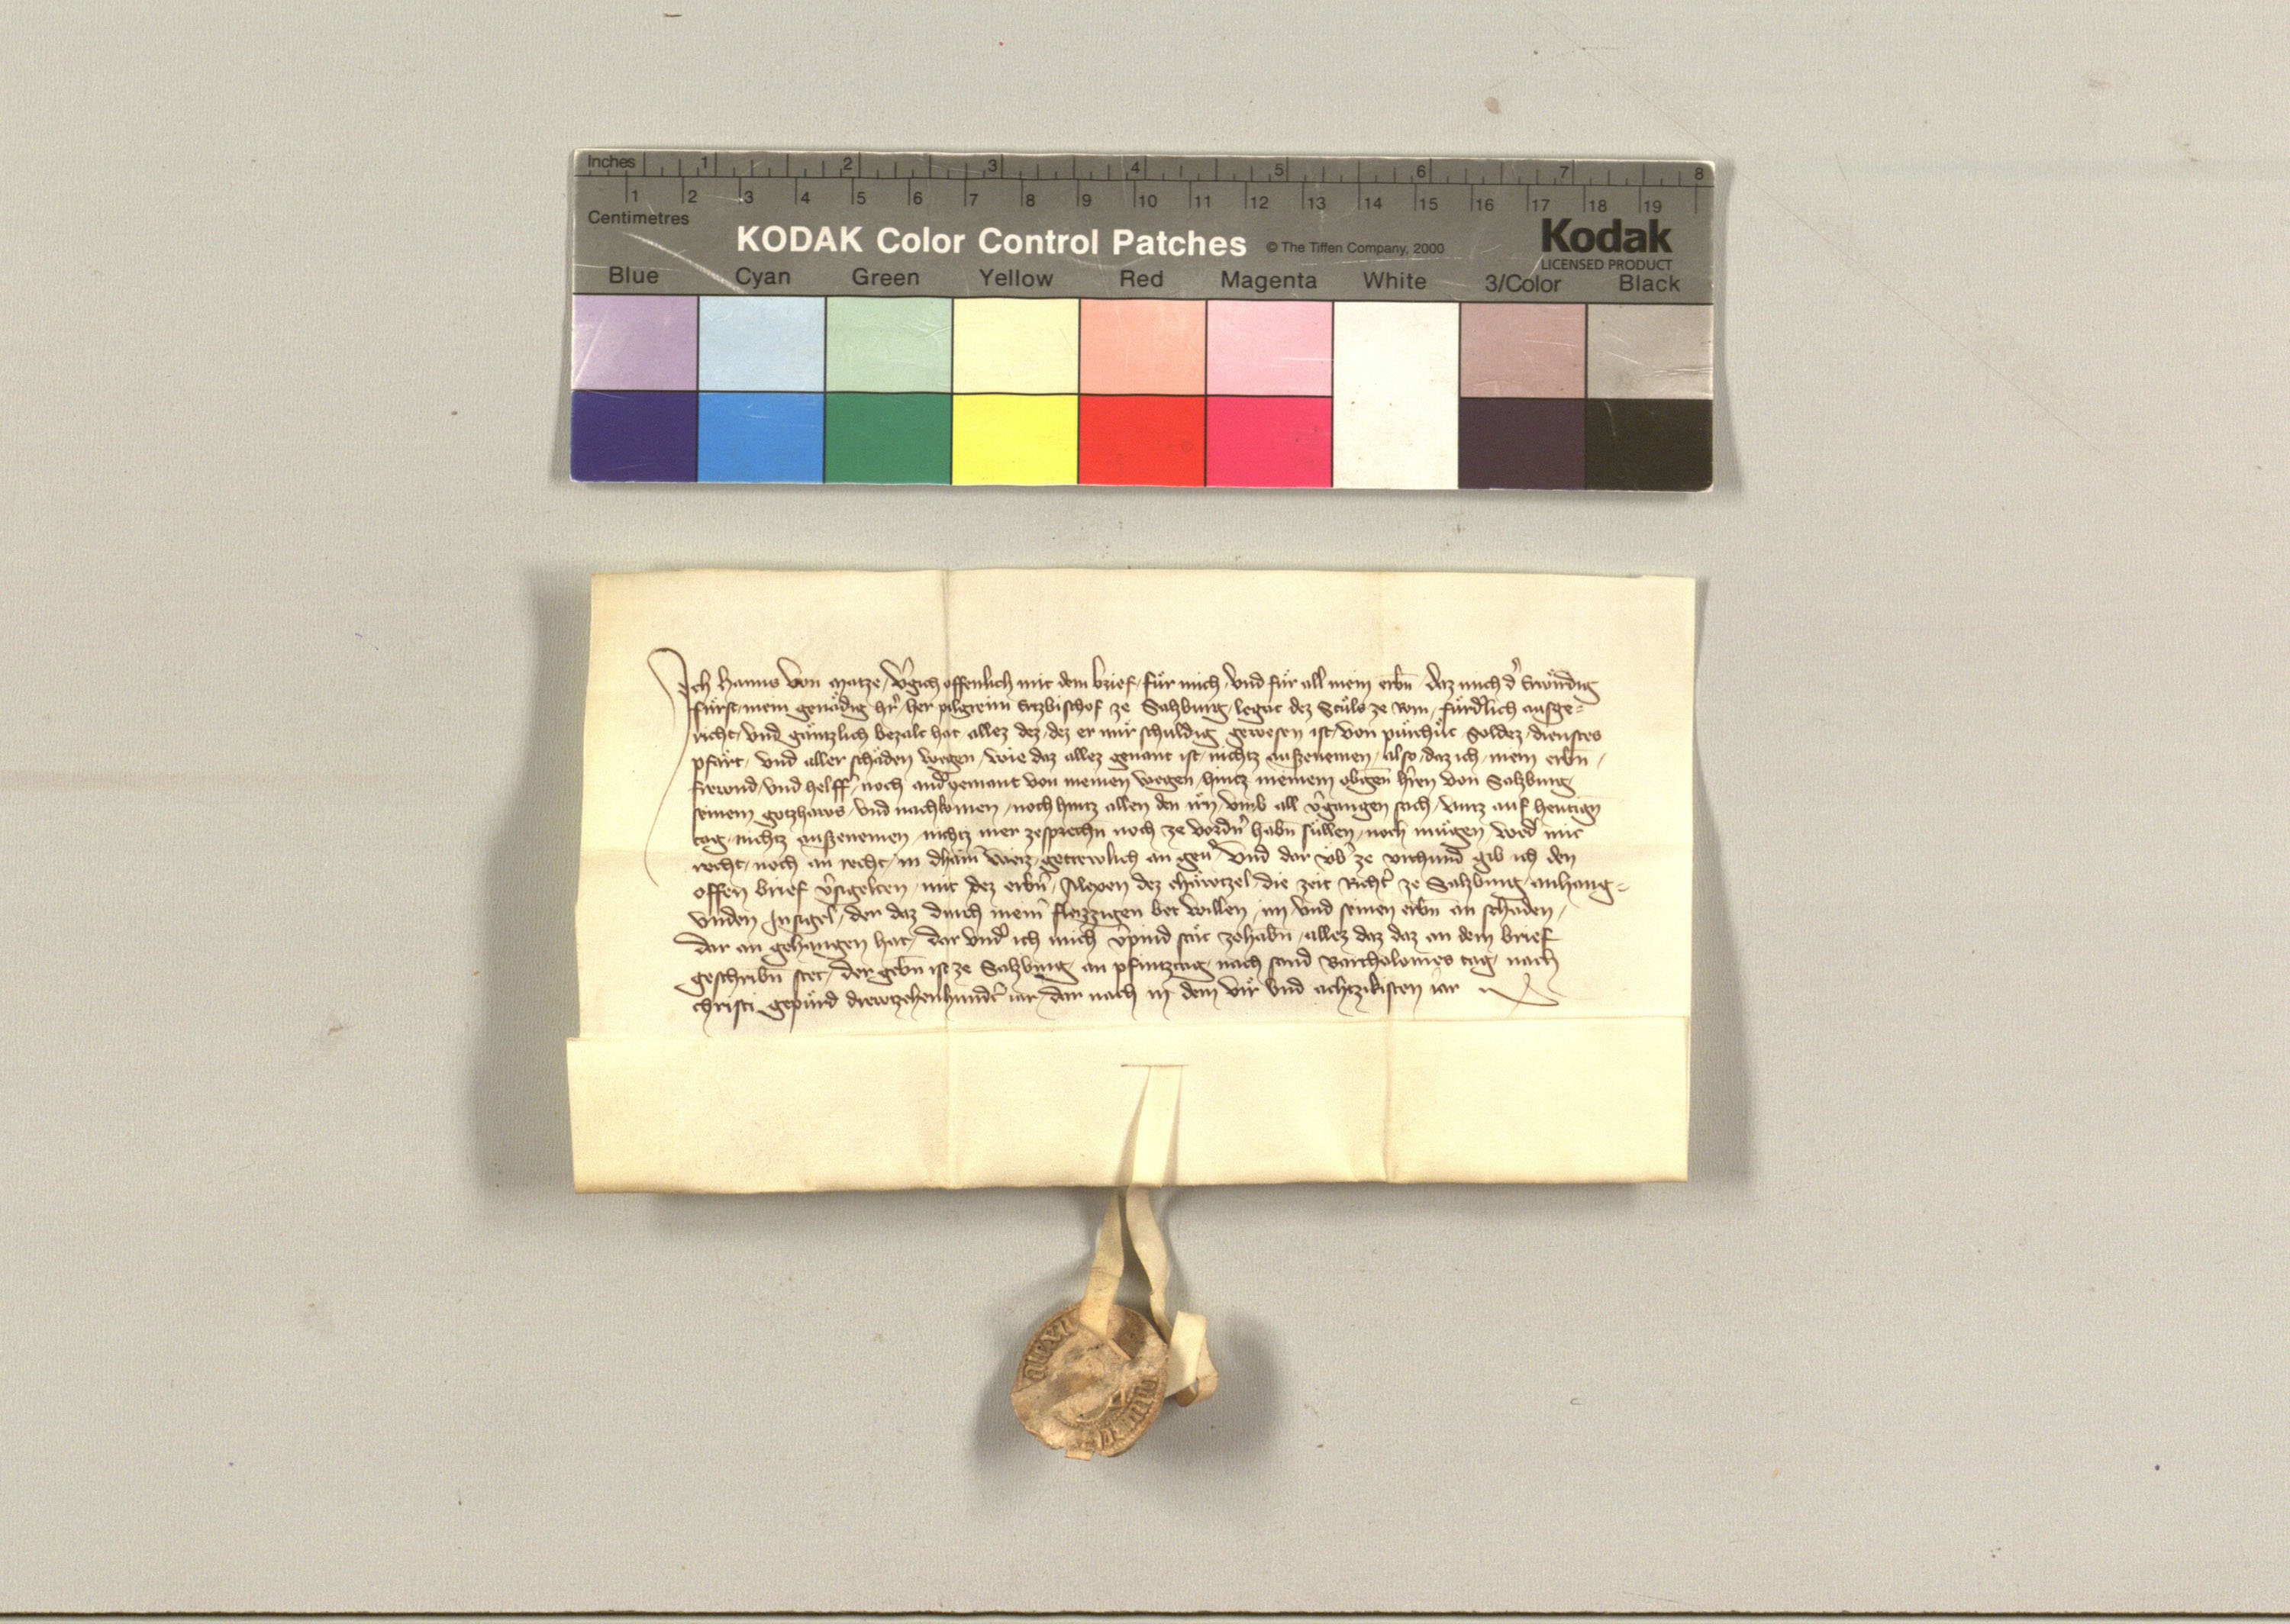 Inches 1 2 3 4 5 6 7 8
1 2 3 4 5 6 7 8 9 10 11 12 13 14 15 16 17 18 19
Centimetres
KODAK Color Control Patches © The Tiffen Company, 2000 Kodak
LICENSED PRODUCT
Blue Cyan Green Yellow Red Magenta White 3/Color Black
Ich Hanns von Matze / v̂gich offenlich mit dem brief / für mich / vnd für all mein erbn̄ / daz mich d̂ Erwirdig
fürst / mein genädig hr̂ / her pilgreim Ertzbischof ze Salzburg / legat dez Stůls ze Rom / fürd̂lich ausge=
richt / vnd gäntzlich bezalt hat allez dez / dez er mir schuldig gewesen ist / von pürchhůt / Soldez / dienstes
pfärt / vnd aller schäden wegen / wie daz allez genant ist / nichtz auszenemen / also / daz ich / mein erbn̄ /
frewnd / vnd helff̂ / noch and̂ yemant von meinen wegen / hintz meinem obigen̄ hr̂en von Salzburg
seinem gotzhaws / vnd nachkomen / noch hintz allen den irn̄ / vmb all v̂gangen sach / vntz auf hewtign̄
tag / nichtz auszenemen / nichtz mer zesprechn̄ noch ze vordn̂ habn̄ süllen / noch mügen / wed̂ mit
recht / noch an recht / in dhain̄ weiz / getrewlich an geu̇̂ / Vnd dar vb̂ ze vrchund gib ich den
offen brief v̂sigelten / mit dez erbn̂ / Alexen dez chäwtzel / die zeit Richt̂ ze Salzburg / anhang=
vnden Insigel / der daz durch mein̂ fleizzigen bet willen / im vnd seinen erbn̄ an schaden /
dar an gehangen hat / dar vnd̂ ich mich v̂pind stät zehabn̄ / allez daz daz an dem brief
geschribn̄ stet / der gebn̄ ist ze Salzburg / an pfintztag / nach sand Bartholomes tag / nach
christi gepürd drewtzehenhund̂t iar / dar nach in dem vir vnd achtzikisten iar
alexii